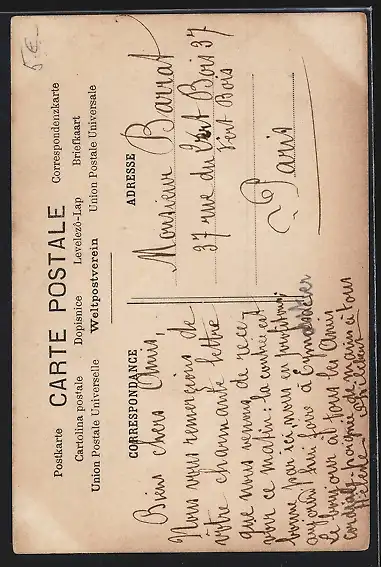 5.E.
Postkarte CARTE POSTALE Correspondenzkarte
Cartolina postale Dopisnice Levelezö-Lap Briefkaart
Union Postale Universelle Weltpostverein Union Postale Universale
CORRESPONDANCE
Biens chers Amis,
Nous vous remercions de
vôtre charmante lettre
que nous venons de rece
voir ce matin: la contrée est
bonne par ici, nous en profitons;
aujourd'hui foire à
le bonjour à tous les Amis
cordiale poignée de main à tous
Hélène
ADRESSE
Monsieur Barrat
37 rue du Vert Bois 37
Vert Bois
Paris